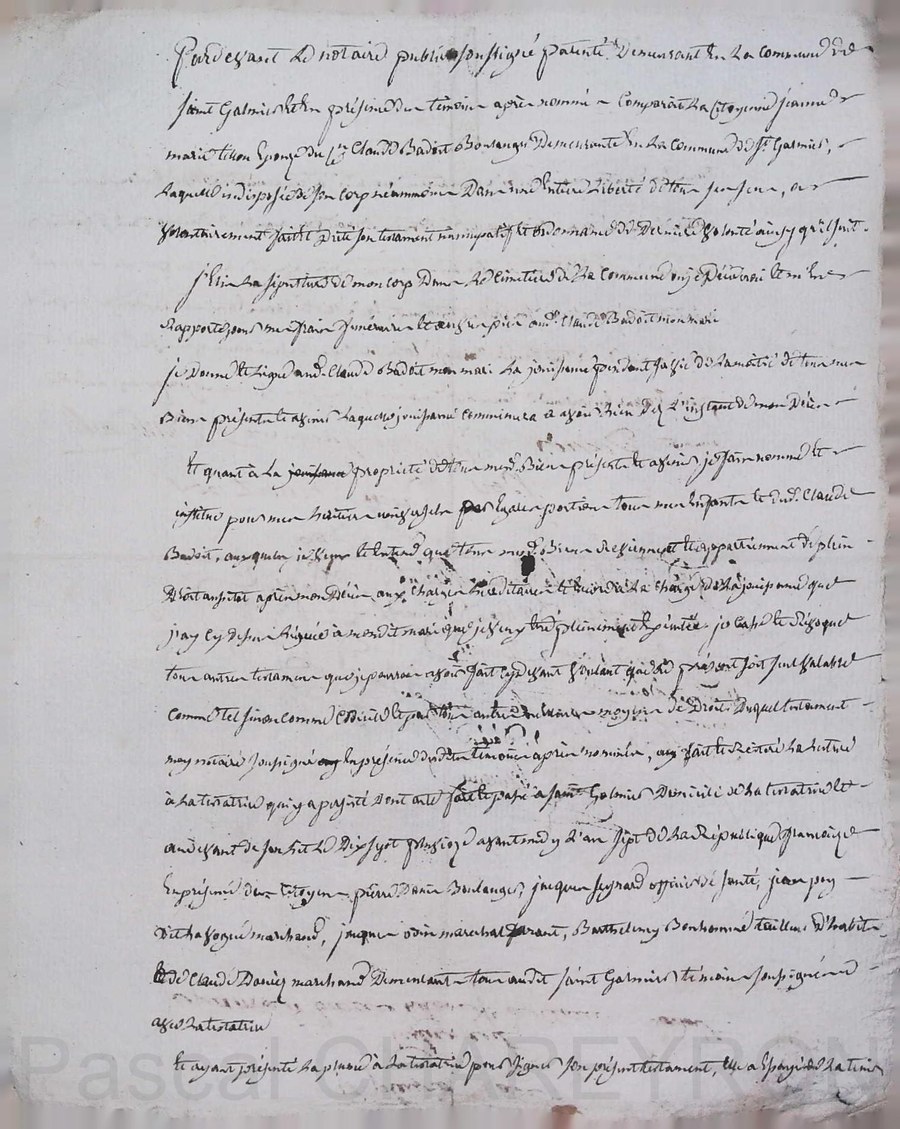 Pardevant le notaire public soussigné patenté demeurant en la commune de
saint Galmier et en présence des témoins après nommés comparait la Citoyenne jeanne
marie épouze du Cn Claude Badoit Boulanger demeurante en la commune de St Galmier,
laquelle indisposée de son corps néammoins dans une entiere liberté de tous ses sens, a
volontairement fait et dicté son testament nuncupatif et ordonnance de derniere volonté ainsy qu'il suit.
j'Elis la sépulture de mon corps dans le cimetiere de la commune ou je décéderai et m'en
rapporte pour mes frais funéraires et aud. Claude Badoit mon mari
je donne et legue aud. Claude Badoit mon mari la jouissance pendant sa vie de la moitié de tous mes
Biens présents et avenir laquelle jouissance commencera a avoir lieu dez l'instant de mon Décès
Et quant à la jouissance propriété de tous mesd. Biens présents et avenir je fais nomme et
institue pour mes héritiers universels par Egales portions tous mes Enfants et dud. Claude
Badoit, auxquels je veux et Entend que tous mesd. Biens reviennent et appartiennent de plein
Droit aussitot après mon Décès aux charges héréditaires et à la charge de la jouissance que
j'ay cy dessus léguée à mondit mari que je veux être pleinement Exécutée. je casse et révoque
tous autres testaments que je pourrais avoir fait cy devant voulant que le présent soit seul valable
comme tel sinon comme codicile et par tous autres meilleurs moyens de Droit. Duquel testament
moy notaire soussigné en présence desdits témoins après nommés, ay fait et réitéré la lecture
à la testatrice qui y a persisté dont acte fait et passé à saint Galmier Domicile de la testatrice et
audevant de son lit le Dix sept avant midy l'an sept de la République française
En présence des Citoyens pierre Boulanger, jacques officier de santé, jean
dit marchand, jacques odin marechal ferant, Barthelemy Bonhomme tailleur d'habits
et de Claude marchand Demeurants tous audit saint Galmier témoins soussignés
avec la testatrice
Et ayant présenté la plume à la testatrice pour signer son présent testament, elle a Essayé de la tenir
Pascal CHAREYRON